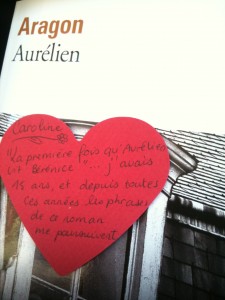 Aragon
Aurélien
Caroline
"La première fois qu'Aurélien
vit Bérénice"... j'avais
18 ans, et depuis toutes
ces années les phrases
de ce roman
me poursuivent